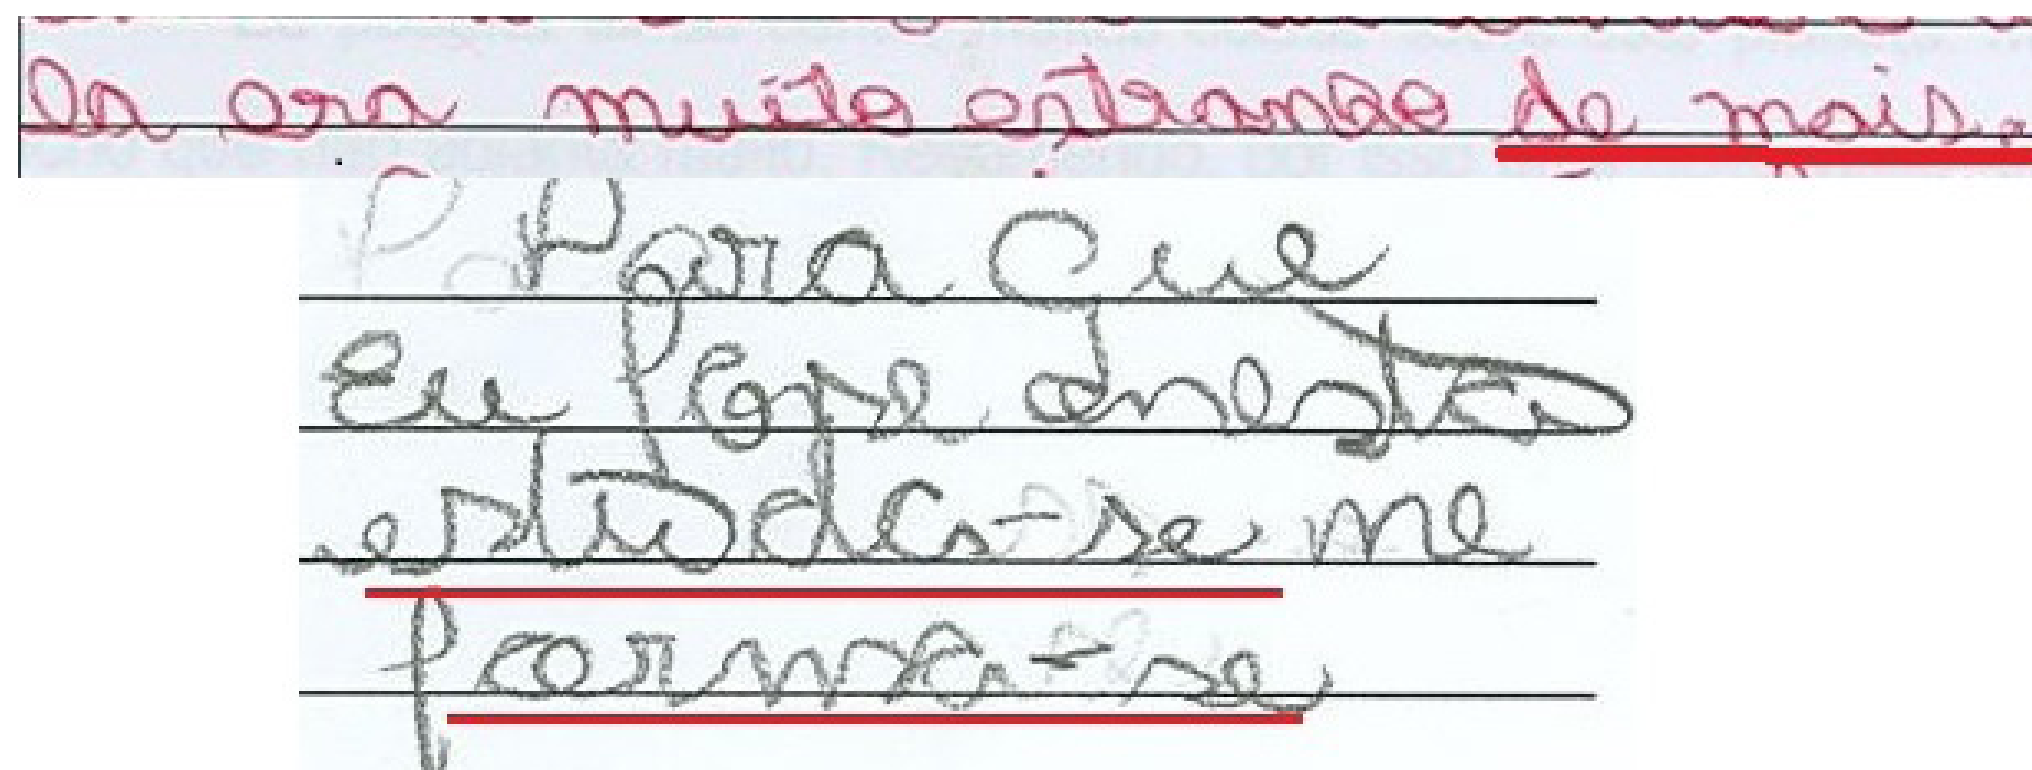 la era muito estranho de mais.
Para Que
Eu fose
estuda-se me
forma-se